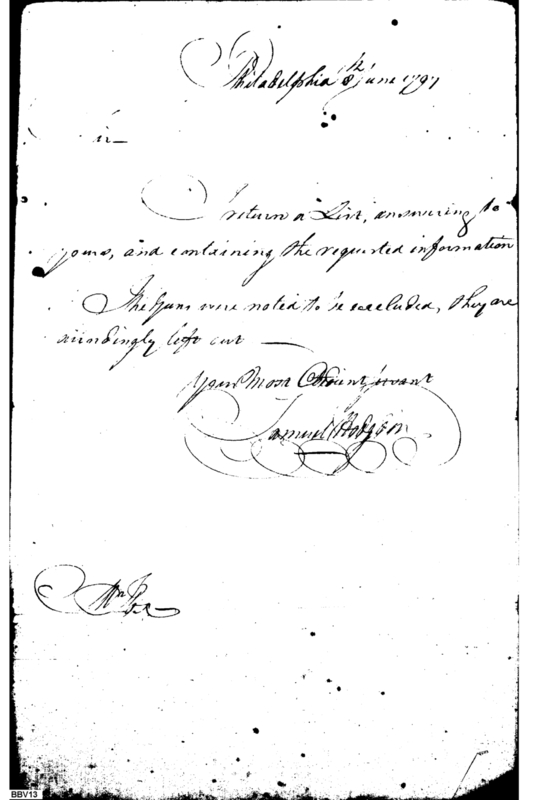 Philadelphia 8th June 1797
Sir
I return a List, answering to
yours, and containing the requested information
The Guns were noted to be excluded, they are
accordingly left out
Your Most Obedient Servant
Samuel Hodgdon
Wm
BBV13